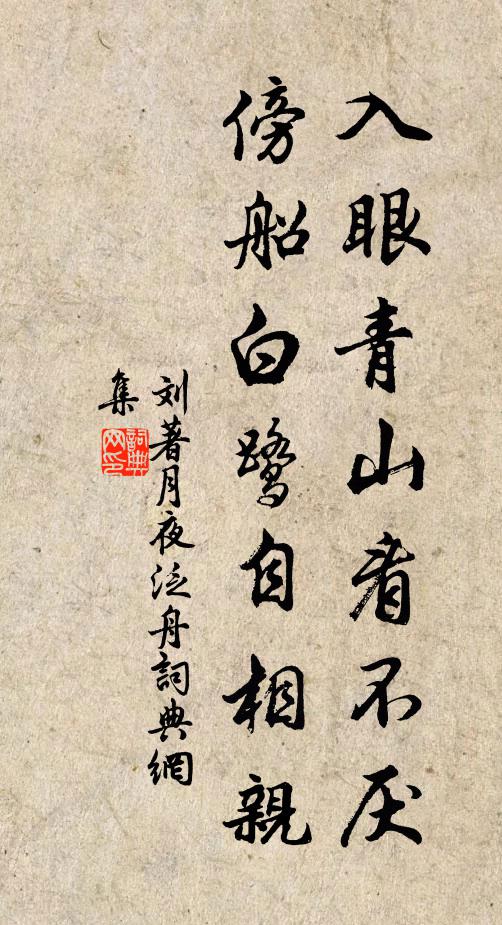 入眼青山看不厌
傍船白鹭自相親
刘著月夜泛舟詞典網
集
詞典網印